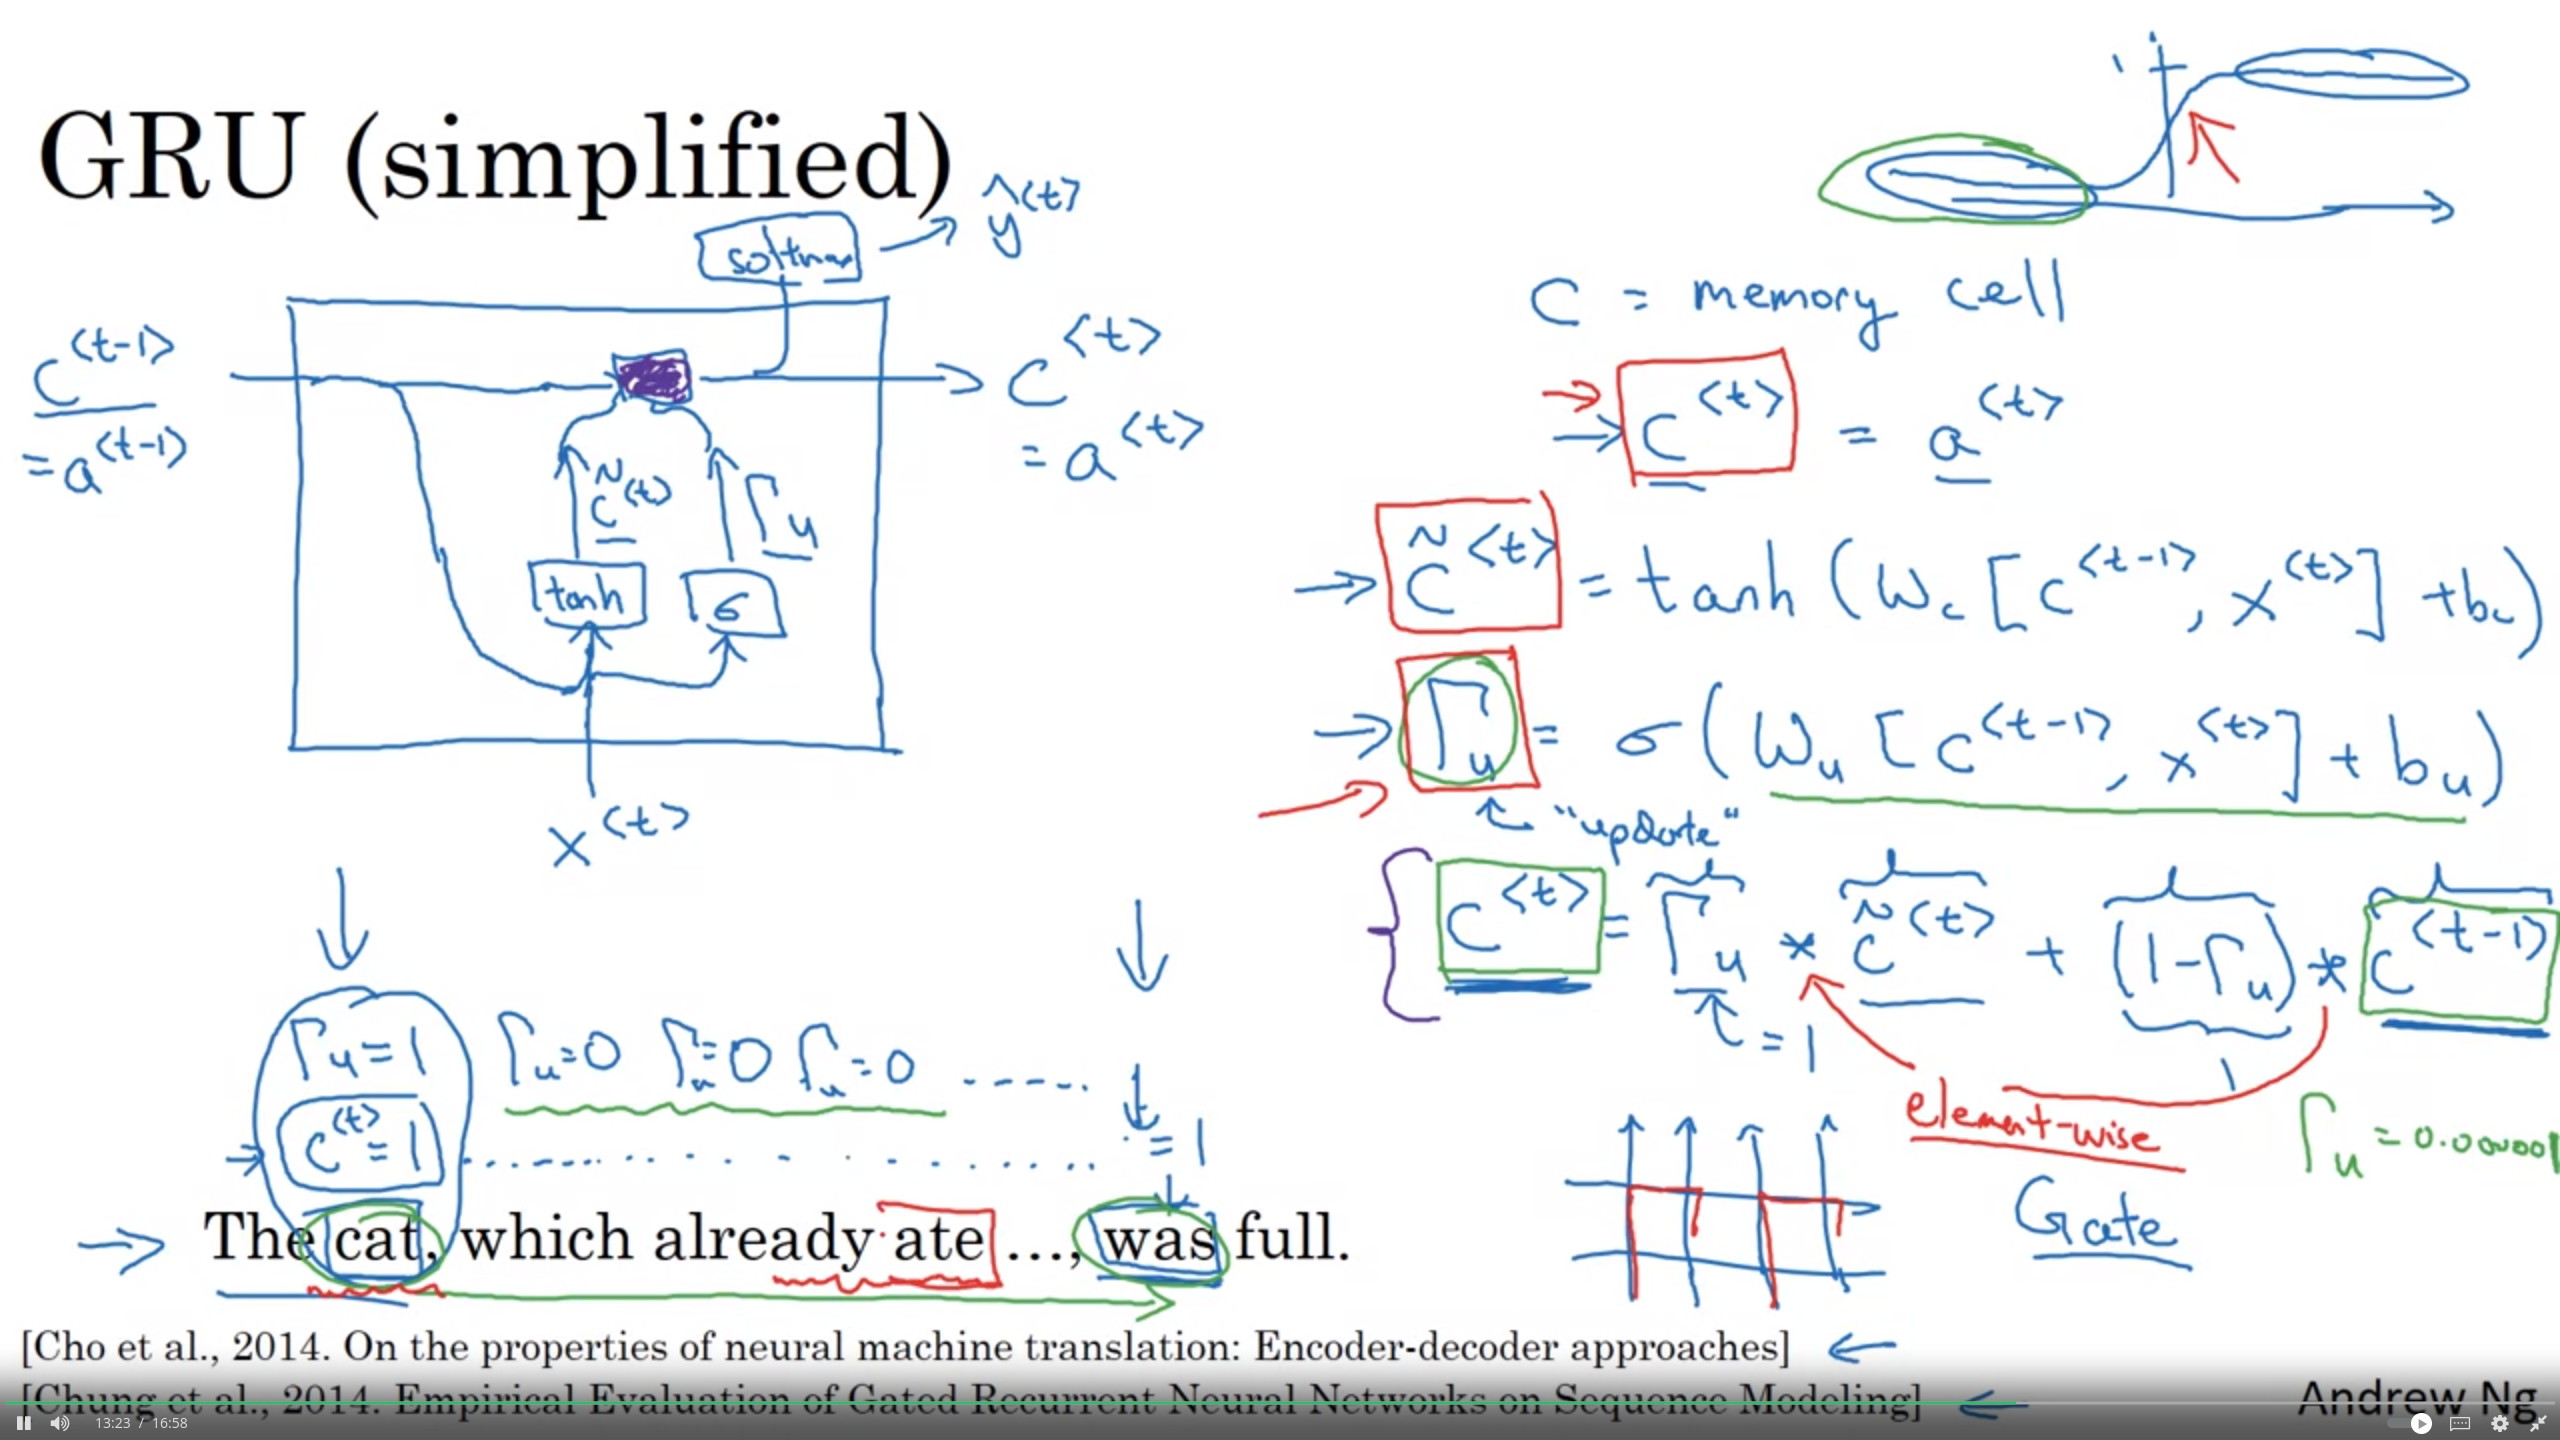 GRU (simplified)
softmax
ŷ<t>
c<t-1>
= a<t-1>
c̃<t>
Γu
tanh
σ
c<t>
= a<t>
x<t>
1
C = memory cell
c<t> = a<t>
c̃<t> = tanh (Wc [c<t-1>, x<t>] + bc)
Γu = σ (Wu [c<t-1>, x<t>] + bu)
"update"
c<t> = Γu * c̃<t> + (1-Γu) * c<t-1>
= 1
element-wise
Γu = 0.000001
Gate
Γu=1 Γu=0 Γu=0 Γu=0 .....
c<t>=1 ............ =1
The cat, which already ate ..., was full.
[Cho et al., 2014. On the properties of neural machine translation: Encoder-decoder approaches]
[Chung et al., 2014. Empirical Evaluation of Gated Recurrent Neural Networks on Sequence Modeling]
Andrew Ng
13:23 / 16:58